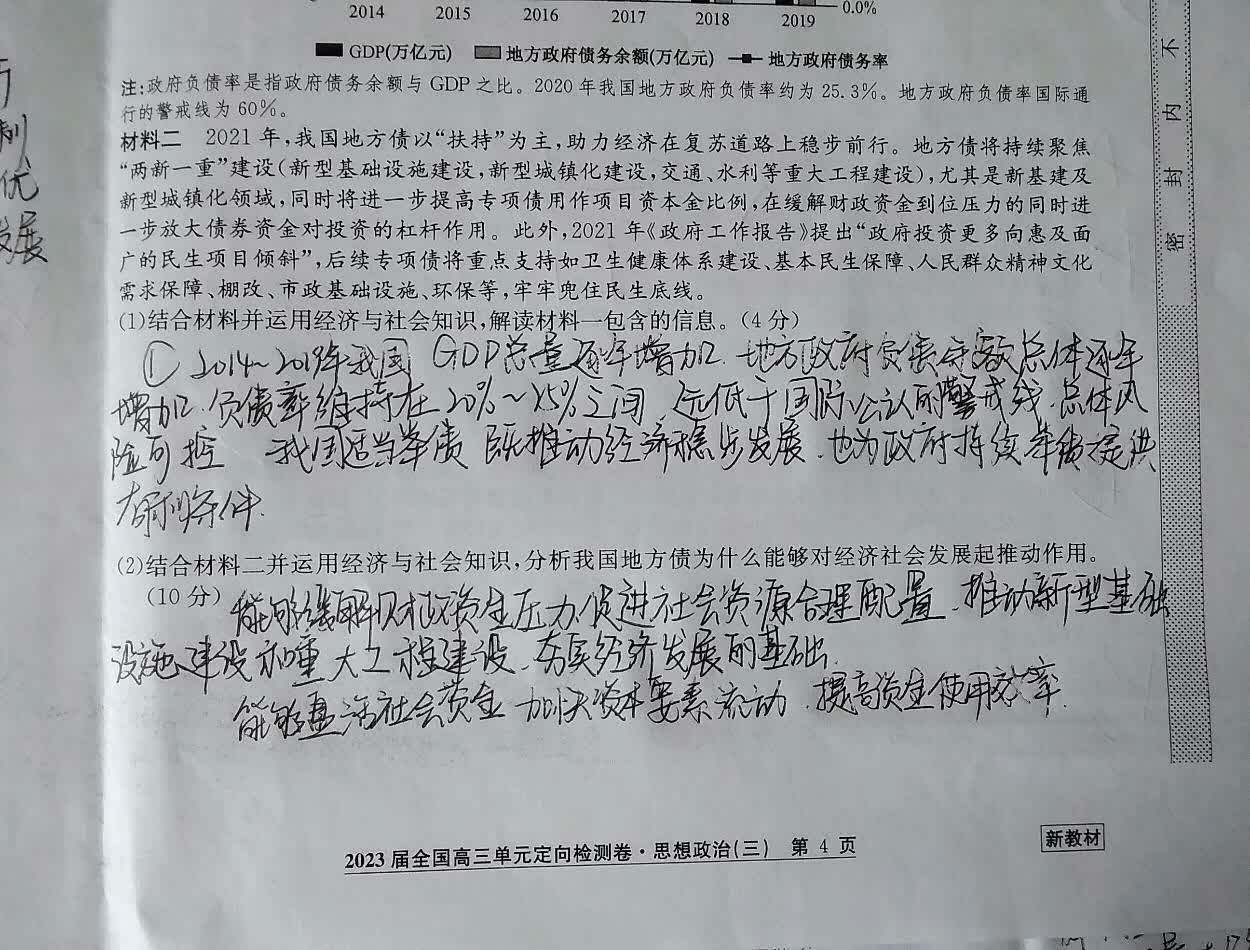 2014 2015 2016 2017 2018 2019 0.0%
GDP(万亿元) 地方政府债务余额(万亿元) 地方政府债务率
注:政府负债率是指政府债务余额与GDP之比。2020年我国地方政府负债率约为25.3%。地方政府负债率国际通
行的警戒线为60%。
材料二 2021年,我国地方债以“扶持”为主,助力经济在复苏道路上稳步前行。地方债将持续聚焦
“两新一重”建设(新型基础设施建设,新型城镇化建设,交通、水利等重大工程建设),尤其是新基建及
新型城镇化领域,同时将进一步提高专项债用作项目资本金比例,在缓解财政资金到位压力的同时进
一步放大债券资金对投资的杠杆作用。此外,2021年《政府工作报告》提出“政府投资更多向惠及面
广的民生项目倾斜”,后续专项债将重点支持如卫生健康体系建设、基本民生保障、人民群众精神文化
需求保障、棚改、市政基础设施、环保等,牢牢兜住民生底线。
(1)结合材料并运用经济与社会知识,解读材料一包含的信息。(4分)
① 2014~2019年我国GDP总量逐年增加.地方政府负债余额总体逐年
增加.负债率维持在20%~25%之间,远低于国际公认的警戒线.总体风
险可控 我国适当举债 既推动经济稳步发展.也为政府持续举债提供
有利条件.
(2)结合材料二并运用经济与社会知识,分析我国地方债为什么能够对经济社会发展起推动作用。
(10分)
能够缓解财政资金压力促进社会资源合理配置.推动新型基础
设施建设和重大工程建设.夯实经济发展的基础.
能够盘活社会资金 加快资本要素流动.提高资金使用效率.
2023届全国高三单元定向检测卷·思想政治(三) 第4页
新教材
不
内
封
密
制
优
发展